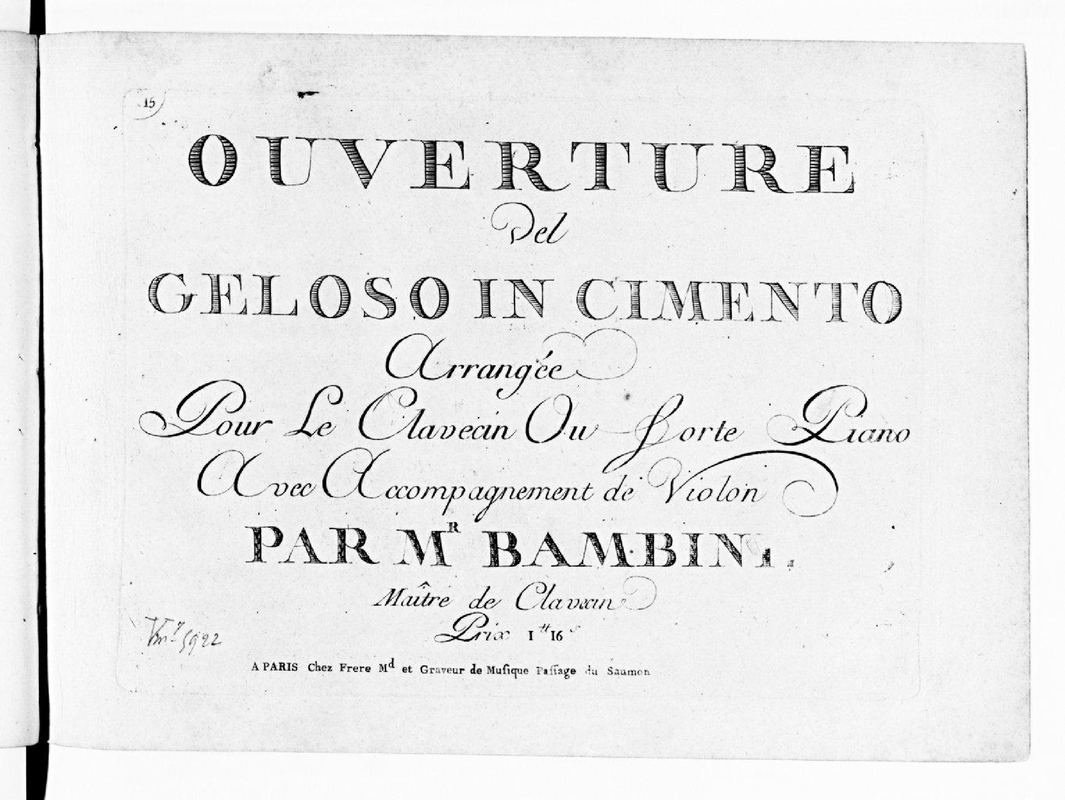 15
OUVERTURE
Del
GELOSO IN CIMENTO
Arrangée
Pour Le Clavecin Ou Forte Piano
Avec Accompagnement de Violon
PAR MR BAMBINI.
Maître de Clavecin
Prix 1tt 16s
Vm7 5922
A PARIS Chez Frere Md et Graveur de Musique Passage du Saumon